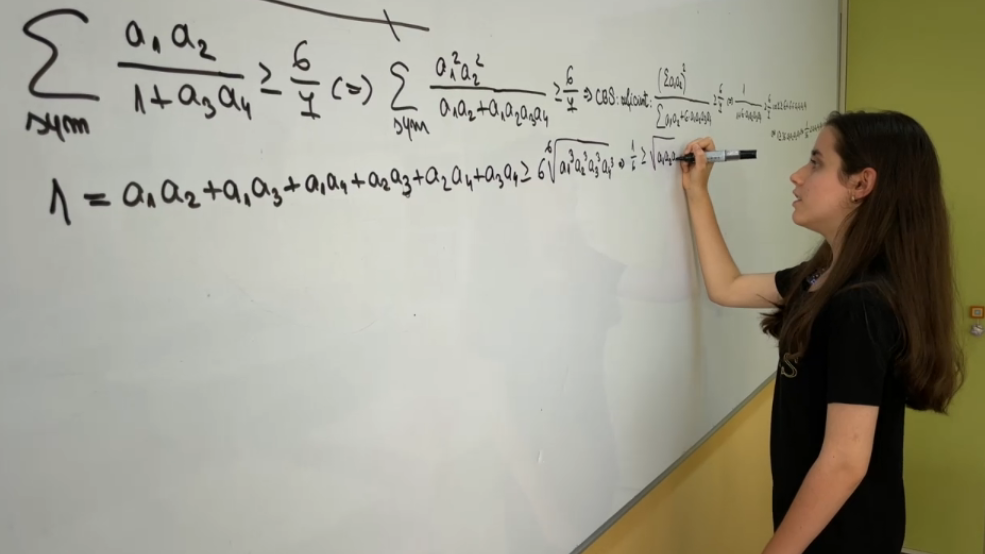 ∑sym a₁a₂/(1+a₃a₄) ≥ 6/7 (=) ∑sym a₁²a₂²/(a₁a₂+a₁a₂a₃a₄) ≥ 6/7 ⇒ CBS: suficient: (∑a₁a₂)²/(∑a₁a₂+6a₁a₂a₃a₄) ≥ 6/7 ⇔ 1/(1+6a₁a₂a₃a₄) ≥ 6/7
1 = a₁a₂+a₁a₃+a₁a₄+a₂a₃+a₂a₄+a₃a₄ ≥ 6 ⁶√(a₁³a₂³a₃³a₄³) ⇒ 1/6 ≥ √(a₁a₂a
S